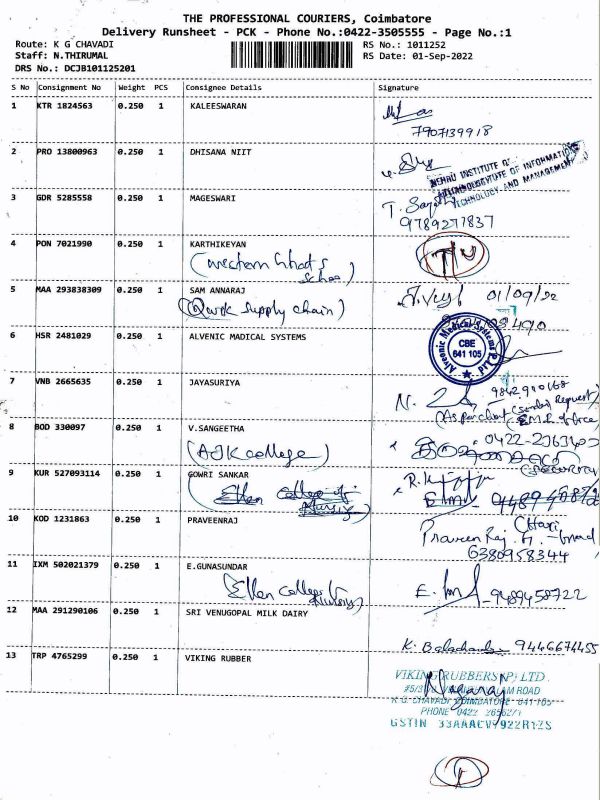 THE PROFESSIONAL COURIERS, Coimbatore
Delivery Runsheet - PCK - Phone No.:0422-3505555 - Page No.:1
Route: K G CHAVADI
Staff: N.THIRUMAL
DRS No.: DCJB101125201
RS No.: 1011252
RS Date: 01-Sep-2022
S No Consignment No Weight PCS Consignee Details Signature
1 KTR 1824563 0.250 1 KALEESWARAN
7907139918
2 PRO 13800963 0.250 1 DHISANA NIIT
NEHRU INSTITUTE OF
TECHNOLOGY AND MANAGEMENT
3 GDR 5285558 0.250 1 MAGESWARI
9789277837
4 PON 7021990 0.250 1 KARTHIKEYAN
(Western Ghats
School)
5 MAA 293838309 0.250 1 SAM ANNARAJ 01/09/22
(Qwik Supply chain)
6 HSR 2481029 0.250 1 ALVENIC MADICAL SYSTEMS
Alvenic Medical Systems P Ltd
CBE
641 105
7 VNB 2665635 0.250 1 JAYASURIYA
9842910168
8 BOD 330097 0.250 1 V.SANGEETHA
(AJK college)
(Security)
9 KUR 527093114 0.250 1 GOWRI SANKAR
Ellen College of
10 KOD 1231863 0.250 1 PRAVEENRAJ
Praveen Raj. A.
6380958344
11 IXM 502021379 0.250 1 E.GUNASUNDAR
Ellen College
9489458722
12 MAA 291290106 0.250 1 SRI VENUGOPAL MILK DAIRY
9446674455
13 TRP 4765299 0.250 1 VIKING RUBBER
VIKING RUBBERS (P) LTD.
Nagaraj
K.G. CHAVADI COIMBATORE 641 105
PHONE 0422
GSTIN 33AAACV7922R1ZS